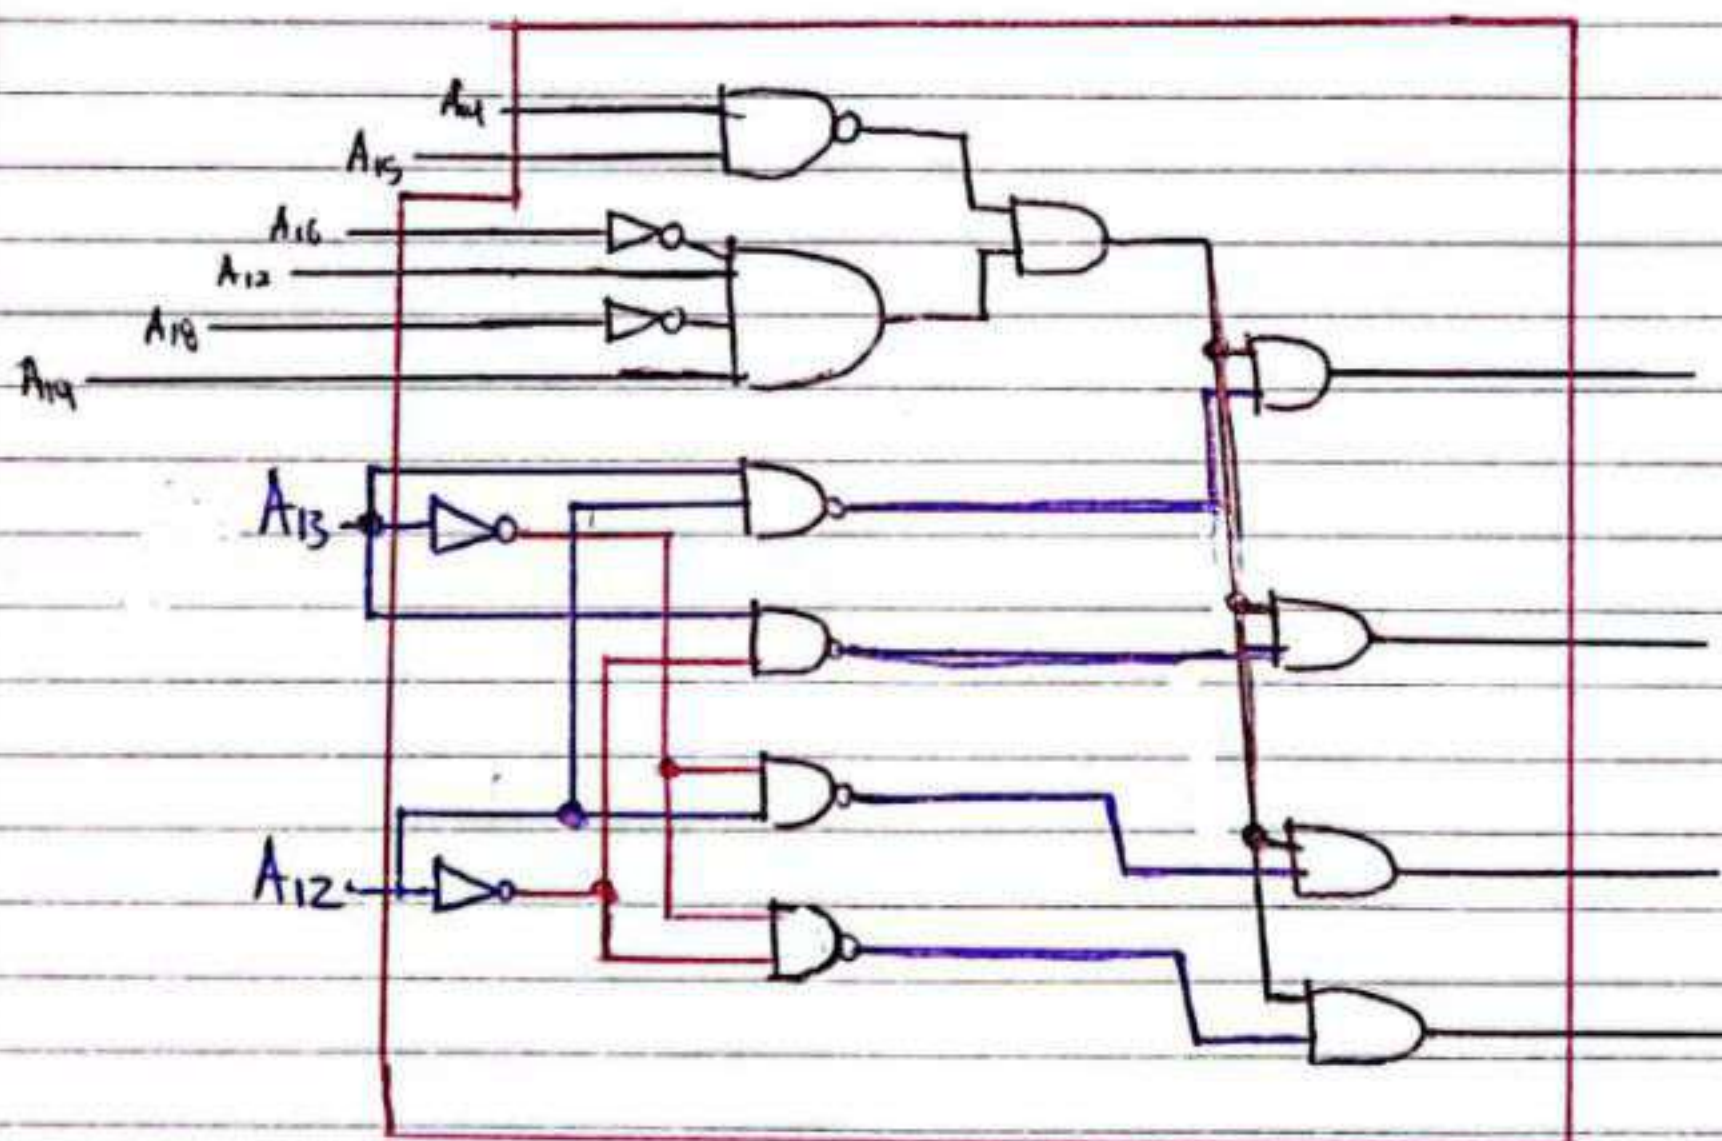 A14
A15
A16
A12
A18
A19
A13
A12